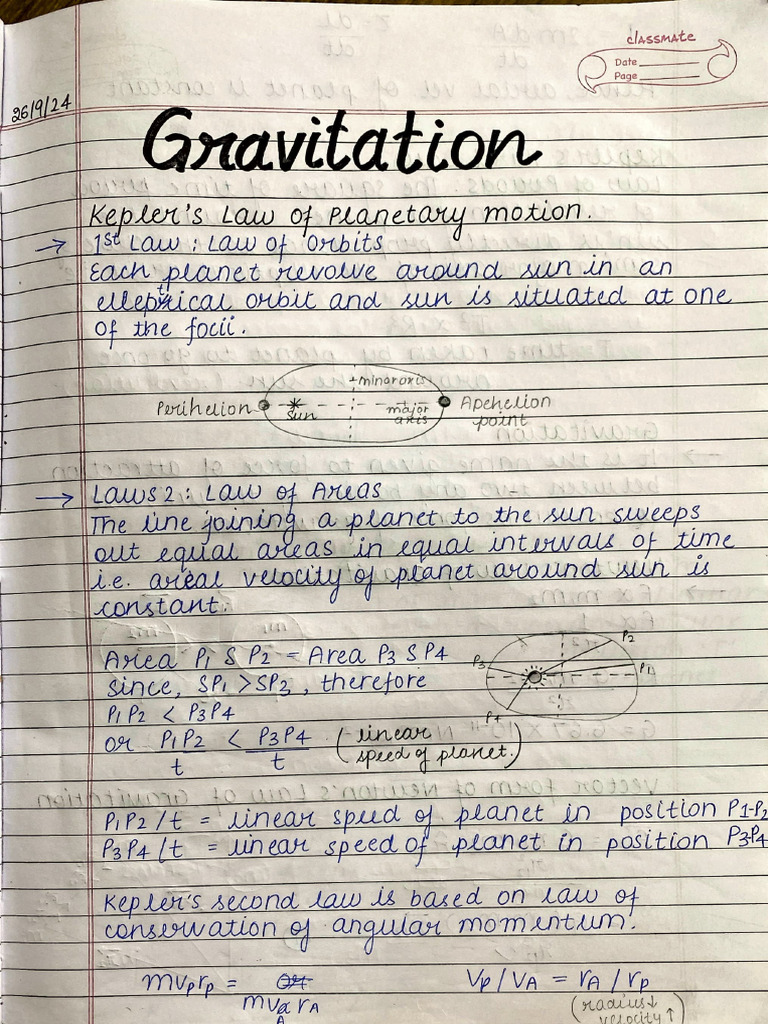 classmate
Date
Page
26/9/24
Gravitation
Kepler's Law of Planetary motion.
→ 1st Law : Law of Orbits
Each planet revolve around sun in an
elleptical orbit and sun is situated at one
of the focii.
minoraxis
Perihelion
sun
major
axis
Apehelion
point
→ Laws 2 : Law of Areas
The line joining a planet to the sun sweeps
out equal areas in equal intervals of time
i.e. areal velocity of planet around sun is
constant.
Area P1 S P2 = Area P3 S P4
since, SP1 > SP3 , therefore
P1P2 < P3P4
or P1P2/t < P3P4/t (linear
speed of planet.)
P2
P3
P1
P4
P1P2/t = linear speed of planet in position P1-P2
P3P4/t = linear speed of planet in position P3-P4
Kepler's second law is based on law of
conservation of angular momentum.
mvprp = mvArA
vp/vA = rA/rp
(radius↓
velocity↑)